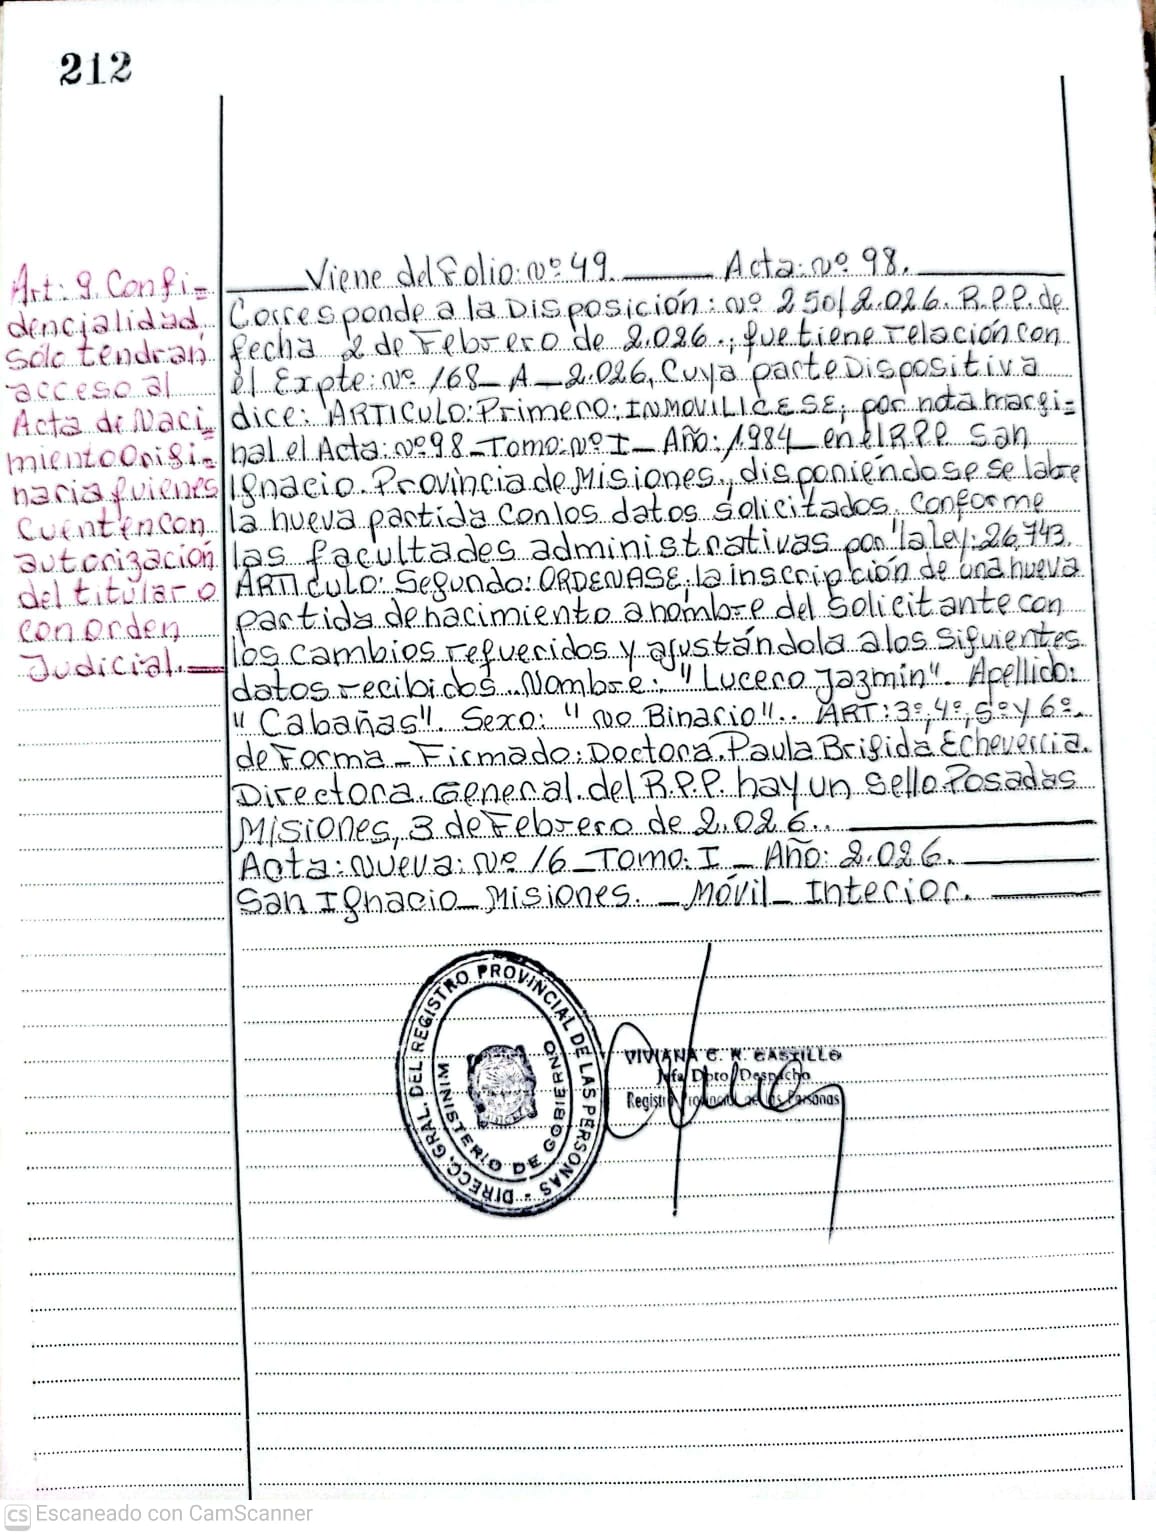 212
Art: 9. Confi=
dencialidad
sólo tendrán
acceso al
Acta de Naci=
miento Origi=
naria quienes
cuenten con
autorización
del titular o
con orden
Judicial.
Viene del Folio: nº 49. Acta: nº 98.
Corresponde a la Disposición: nº 250/2.026. R.P.P. de
fecha 2 de Febrero de 2.026.; que tiene relación con
el Expte: nº 168_A_2.026, Cuya parte Dispositiva
dice: ARTICULO: Primero: INMOVILICESE; por nota margi=
nal el Acta: nº 98_Tomo: nº I_ Año: 1984_ en el R.P.P. San
Ignacio. Provincia de Misiones., disponiéndose se labre
la nueva partida con los datos solicitados. Conforme
las facultades administrativas por la ley: 26.743.
ARTICULO: Segundo: ORDENASE, la inscripción de una nueva
partida de nacimiento a nombre del solicitante con
los cambios requeridos y ajustándola a los siguientes
datos recibidos. Nombre: "Lucero Jazmín". Apellido:
"Cabañas". Sexo: "No Binario".. ART: 3º, 4º, 5º y 6º.
de Forma_ Firmado: Doctora. Paula Brigida Echeverria.
Directora. General. del R.P.P. hay un sello. Posadas
Misiones, 3 de Febrero de 2.026..
Acta: Nueva: Nº 16_Tomo: I_ Año: 2.026.
San Ignacio_Misiones._Móvil_Interior.
DIRECC. GRAL. DEL REGISTRO PROVINCIAL DE LAS PERSONAS -
MINISTERIO DE GOBIERNO
VIVIANA C. R. CASTILLO
Jefa Dpto Despacho
Registro Provincial de las Personas
CS Escaneado con CamScanner